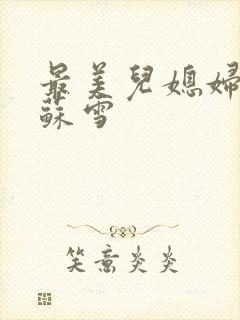 最美兒媳婦
蘇雪
笑意炎炎